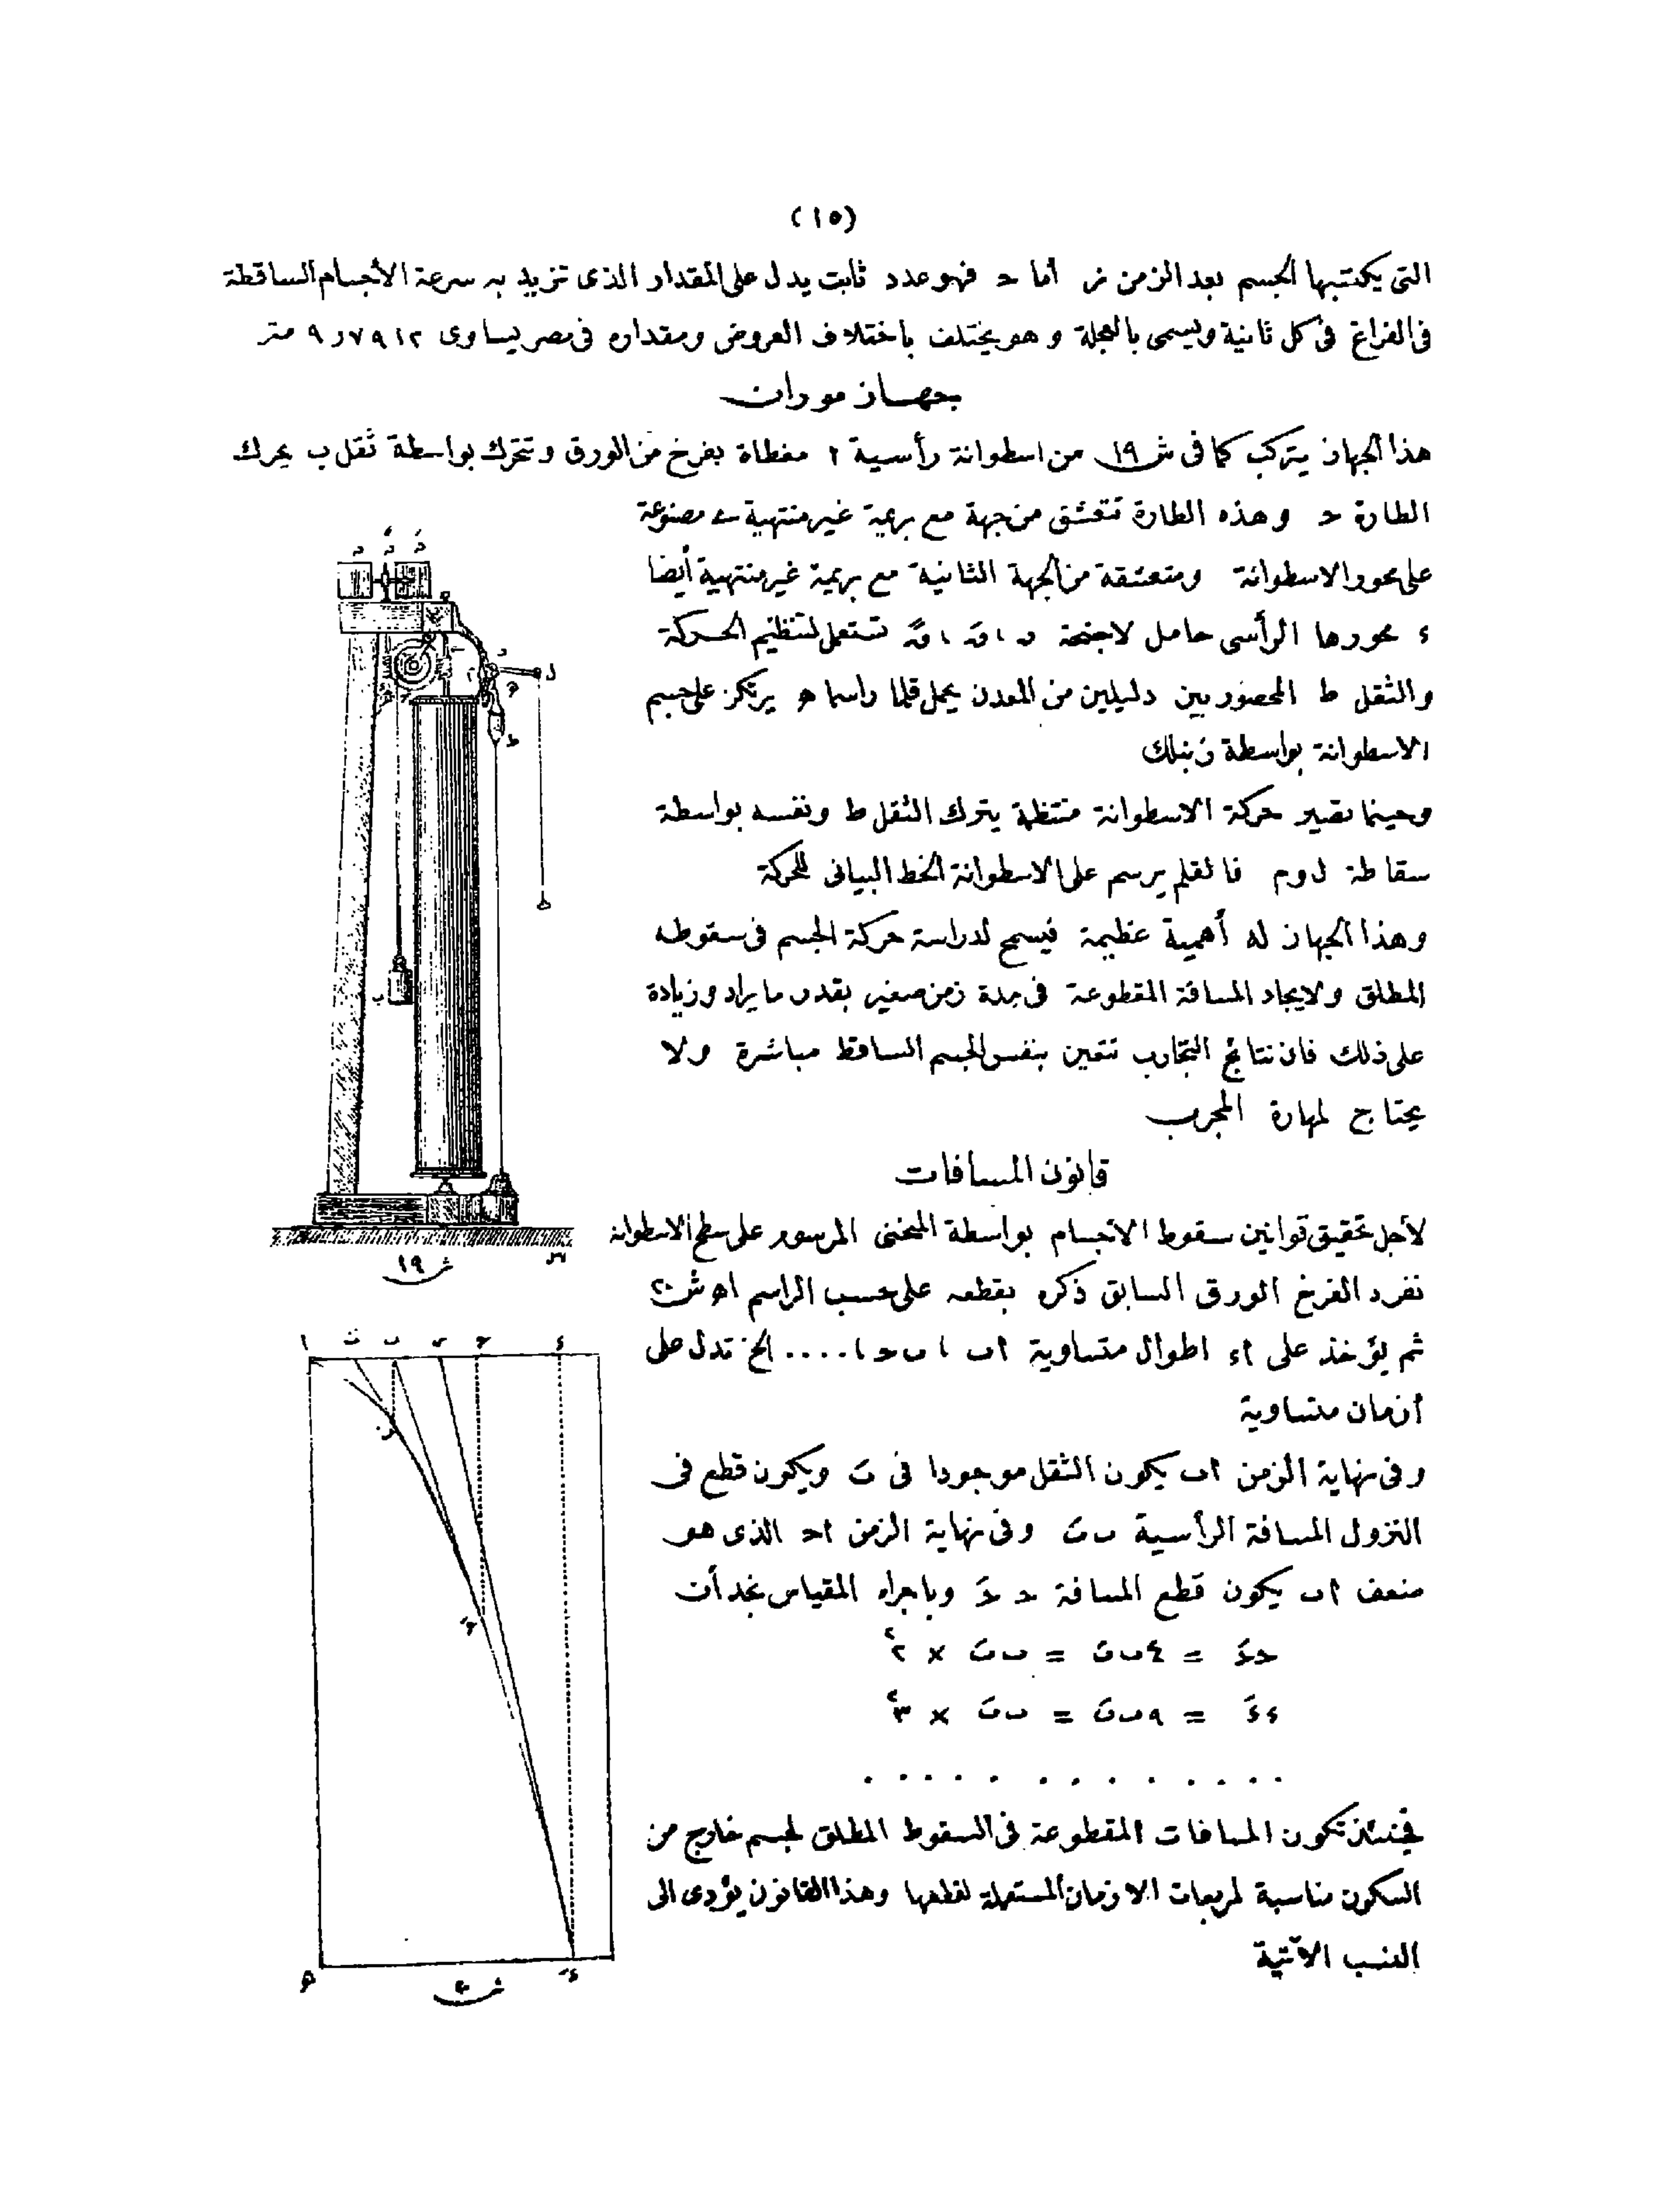 (١٥)
التى يكتسبها الجسم بعد الزمن ز أما ح فهو عدد ثابت يدل على المقدار الذى تزيد به سرعة الأجسام الساقطة
فى الفراغ فى كل ثانية ويسمى بالعجلة وهو يختلف باختلاف العروض ومقداره فى مصر يساوى ٩ر٧٩١٢ متر
جهاز موران
هذا الجهاز يتركب كما فى ش ١٩ من اسطوانة رأسية ا مغطاة بفرخ من الورق وتتحرك بواسطة ثقل ب يحرك
الطارة ح وهذه الطارة تتعشق من جهة مع بريمة غير منتهية مصنوعة
على محور الاسطوانة ومتعشقة من الجهة الثانية مع بريمة غير منتهية أيضا
ء محورها الرأسى حامل لاجنحة تستعمل لتنظيم الحركة
والثقل ط المحصور بين دليلين من المعدن يحمل قلما راسما ه يرتكز على جسم
الاسطوانة بواسطة زنبلك
وحينما تصير حركة الاسطوانة منتظمة يترك الثقل ط ونفسه بواسطة
سقاطة ل و م فالقلم يرسم على الاسطوانة الخط البيانى للحركة
وهذا الجهاز له أهمية عظيمة فيسمح لدراسة حركة الجسم فى سقوطه
المطلق ولايجاد المسافة المقطوعة فى مدة زمن صغير بقدر ما يراد وزيادة
على ذلك فان نتائج التجارب تتعين بنفس الجسم الساقط مباشرة ولا
يحتاج لمهارة المجرب
قانون المسافات
لأجل تحقيق قوانين سقوط الاجسام بواسطة المنحنى المرسوم على سطح الاسطوانة
نفرد الفرخ الورق السابق ذكره بقطعه على حسب الراسم اه ش ٢٠
ثم يؤخذ على اء اطوال متساوية اب ، ب ح ، .... الخ تدل على
أزمان متساوية
وفى نهاية الزمن اب يكون الثقل موجودا فى بَ ويكون قطع فى
النزول المسافة الرأسية ب بَ وفى نهاية الزمن اح الذى هو
ضعف اب يكون قطع المسافة ح حَ وباجراء المقياس نجد أن
ح حَ = ٤ ب بَ = ب بَ × ٢٢
ء ءَ = ٩ ب بَ = ب بَ × ٣٢
. . . . . . . . . . . .
فحينئذ تكون المسافات المقطوعة فى السقوط المطلق لجسم خارج من
السكون مناسبة لمربعات الازمان المستعملة لقطعها وهذا القانون يؤدى الى
النسب الآتية
ش ١٩
ش ٢٠